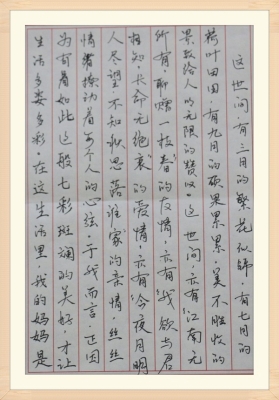 这世间,有三月的繁花似锦,有七月的
荷叶田田,有九月的硕果累累,美不胜收的
景致给人以无限的赞叹。这世间,亦有“江南无
所有,聊赠一枝春”的友情,亦有“我欲与君
相知,长命无绝衰”的爱情,亦有“今夜月明
人尽望,不知秋思落谁家”的亲情,丝丝
情绪撩动着每个人的心弦。于我而言,正因
为有着如此这般七彩斑斓的美好,才让
生活多姿多彩。在这生活里,我的妈妈是